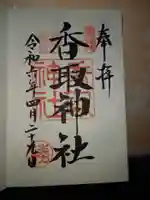 奉拝
香取神社
令和六年四月二十九日